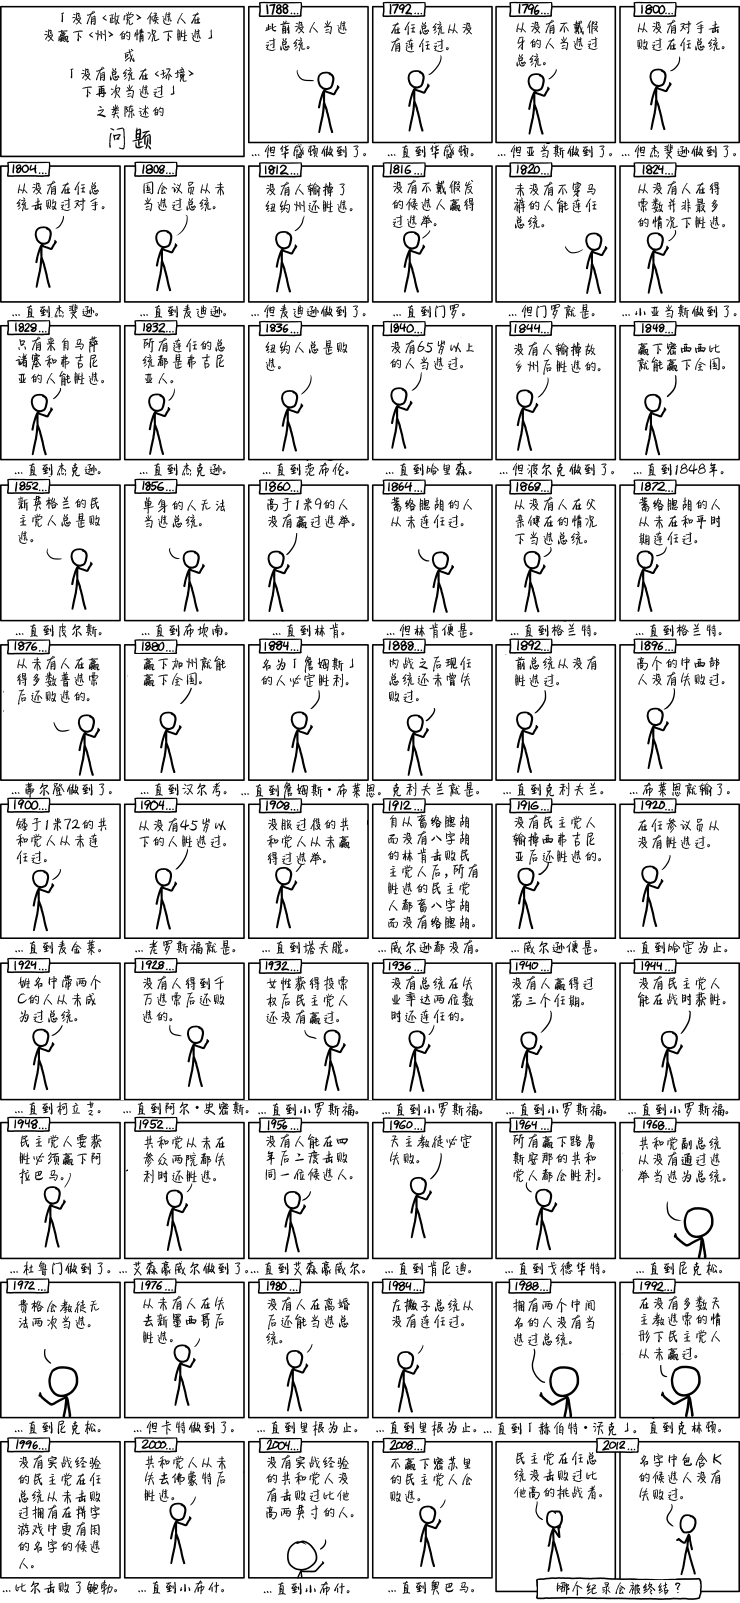 「没有<政党>候选人在
没赢下<州>的情况下胜选」
或
「没有总统在<环境>
下再次当选过」
之类陈述的
问题
1788...
此前没人当选
过总统。
...但华盛顿做到了。
1792...
在任总统从没
有连任过。
...直到华盛顿。
1796...
从没有不戴假
牙的人当选过
总统。
...但亚当斯做到了。
1800...
从没有对手击
败过在任总统。
...但杰斐逊做到了。
1804...
从没有在任总
统击败过对手。
...直到杰斐逊。
1808...
国会议员从未
当选过总统。
...直到麦迪逊。
1812...
没有人输掉了
纽约州还胜选。
...但麦迪逊做到了。
1816...
没有不戴假发
的候选人赢得
过选举。
...直到门罗。
1820...
未没有不穿马
裤的人能连任
总统。
...但门罗就是。
1824...
从没有人在得
票数并非最多
的情况下胜选。
...小亚当斯做到了。
1828...
只有来自马萨
诸塞和弗吉尼
亚的人能胜选。
...直到杰克逊。
1832...
所有连任的总
统都是弗吉尼
亚人。
...直到杰克逊。
1836...
纽约人总是败
选。
...直到范布伦。
1840...
没有65岁以上
的人当选过。
...直到哈里森。
1844...
没有人输掉故
乡州后胜选的。
...但波尔克做到了。
1848...
赢下密西西比
就能赢下全国。
...直到1848年。
1852...
新英格兰的民
主党人总是败
选。
...直到皮尔斯。
1856...
单身的人无法
当选总统。
...直到布坎南。
1860...
高于1米9的人
没有赢过选举。
...直到林肯。
1864...
蓄络腮胡的人
从未连任过。
...但林肯便是。
1868...
从没有人在父
亲健在的情况
下当选总统。
...直到格兰特。
1872...
蓄络腮胡的人
从未在和平时
期连任过。
...直到格兰特。
1876...
从未有人在赢
得多数普选票
后还败选的。
...蒂尔登做到了。
1880...
赢下加州就能
赢下全国。
...直到汉尔考。
1884...
名为「詹姆斯」
的人必定胜利。
...直到詹姆斯·布莱恩。
1888...
内战之后现任
总统还未曾失
败过。
克利夫兰就是。
1892...
前总统从没有
胜选过。
...直到克利夫兰。
1896...
高个的中西部
人没有失败过。
...布莱恩就输了。
1900...
矮于1米72的共
和党人从未连
任过。
...直到麦金莱。
1904...
从没有45岁以
下的人胜选过。
...老罗斯福就是。
1908...
没服过役的共
和党人从未赢
得过选举。
...直到塔夫脱。
1912...
自从蓄络腮胡
而没有八字胡
的林肯击败民
主党人后，所有
胜选的民主党
人都蓄八字胡
而没有络腮胡。
...威尔逊都没有。
1916...
没有民主党人
输掉西弗吉尼
亚后还胜选的。
...威尔逊便是。
1920...
在任参议员从
没有胜选过。
...直到哈定为止。
1924...
姓名中带两个
C的人从未成
为过总统。
...直到柯立芝。
1928...
没有人得到千
万选票后还败
选的。
...直到阿尔·史密斯。
1932...
女性获得投票
权后民主党人
还没有赢过。
...直到小罗斯福。
1936...
没有总统在失
业率达两位数
时还连任的。
...直到小罗斯福。
1940...
没有人赢得过
第三个任期。
...直到小罗斯福。
1944...
没有民主党人
能在战时获胜。
...直到小罗斯福。
1948...
民主党人要获
胜必须赢下阿
拉巴马。
...杜鲁门做到了。
1952...
共和党从未在
参众两院都失
利时还胜选。
...艾森豪威尔做到了。
1956...
没有人能在四
年后二度击败
同一位候选人。
...直到艾森豪威尔。
1960...
天主教徒必定
失败。
...直到肯尼迪。
1964...
所有赢下路易
斯安那的共和
党人都会胜利。
...直到戈德华特。
1968...
共和党副总统
从没有通过选
举当选为总统。
...直到尼克松。
1972...
贵格会教徒无
法两次当选。
...直到尼克松。
1976...
从未有人在失
去新墨西哥后
胜选。
...但卡特做到了。
1980...
没有人在离婚
后还能当选总
统。
...直到里根为止。
1984...
左撇子总统从
没有连任过。
...直到里根为止。
1988...
拥有两个中间
名的人没有当
选过总统。
...直到「赫伯特·沃克」。
1992...
在没有多数天
主教选票的情
形下民主党人
从未赢过。
直到克林顿。
1996...
没有实战经验
的民主党在任
总统从未击败
过拥有在拼字
游戏中更有用
的名字的候选
人。
...比尔击败了鲍勃。
2000...
共和党人从未
失去佛蒙特后
胜选。
...直到小布什。
2004...
没有实战经验
的共和党人没
有击败过比他
高两英寸的人。
...直到小布什。
2008...
不赢下密苏里
的民主党人会
败选。
...直到奥巴马。
2012...
民主党在任总
统没击败过比
他高的挑战者。
名字中包含K
的候选人没有
失败过。
哪个纪录会被终结？